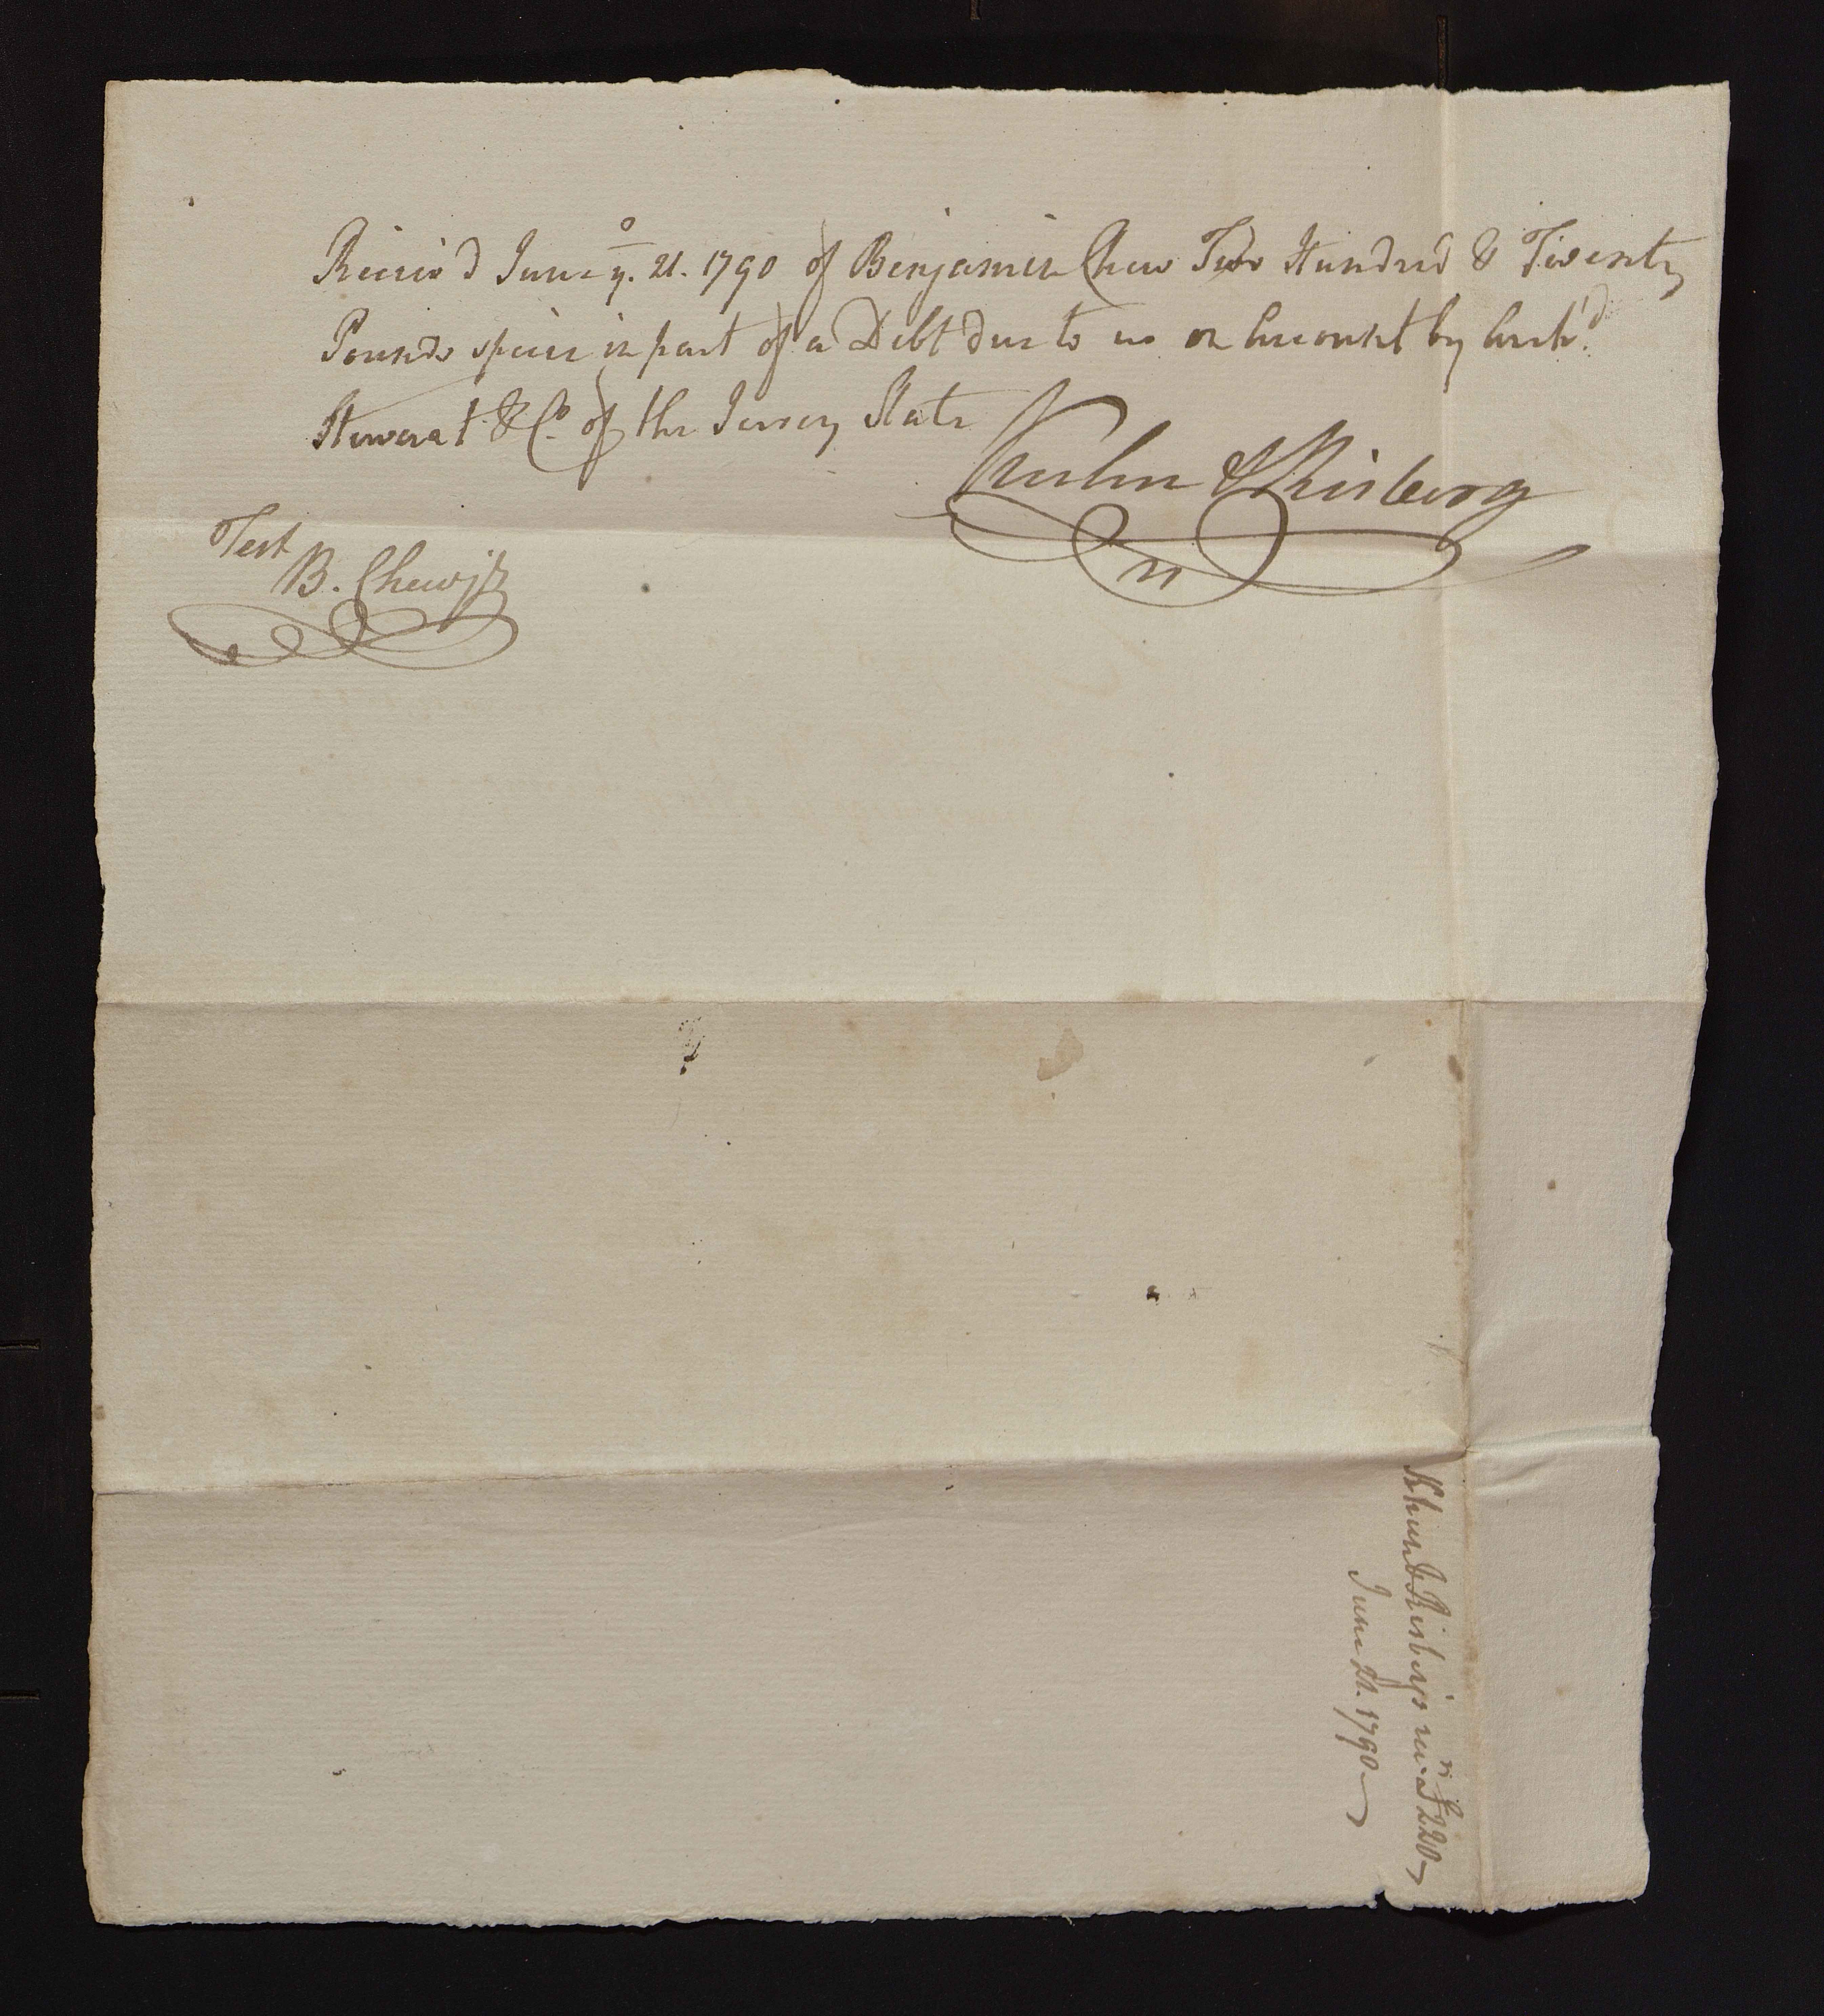 Receiv'd June y. 21. 1790 of Benjamin Chew Two Hundred & Twenty
Pounds specie in part of a Debt due to us on Account by Arch'd
Stewerat & Co. of the Jersey State
Kuhn & Risberg
Test
B. Chew jr
Khun & Risberg's rec.t £220
June 21. 1790